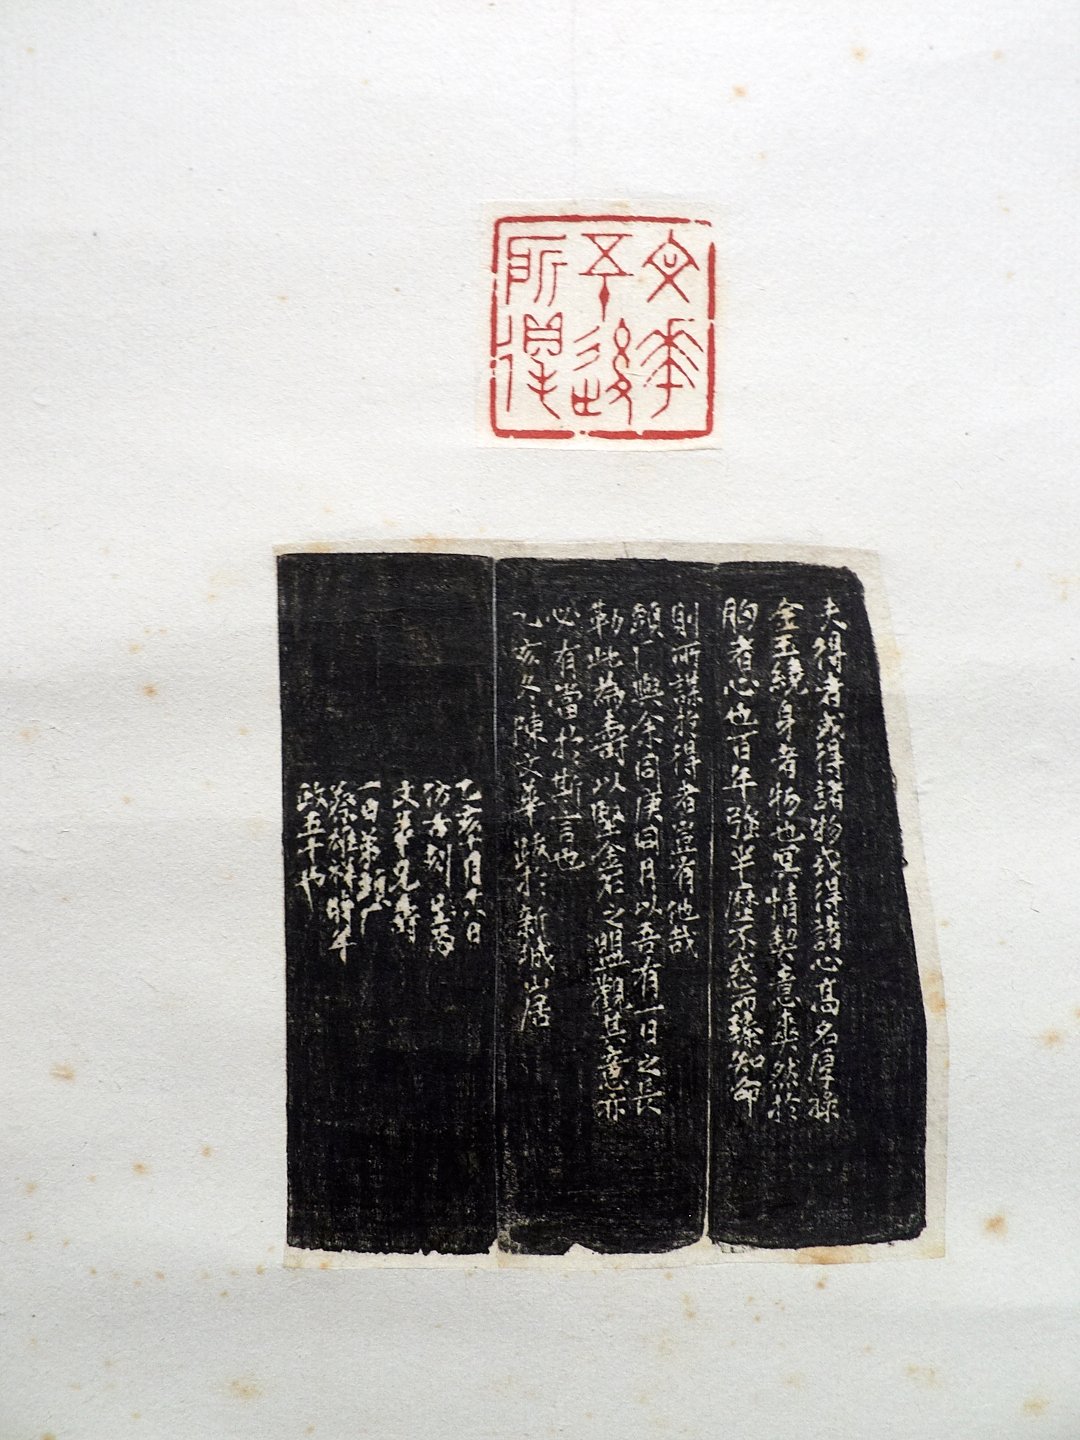 文華
五十後
所得
夫得者或得諸物或得諸心高名厚祿
金玉繞身者物也冥情契意爽然於
胸者心也百年強半歷不惑而臻知命
則所謀於得者豈有他哉
顛厂與余同庚日月以吾有一日之長
勒此為壽以堅金石之盟觀其意亦
必有當於斯言也
乙亥冬陳文華跋於新城山居
乙亥十月十八日
仿古刻呈為
文華兄壽
一日弟顛厂
蔡雄祥時年
政五十也